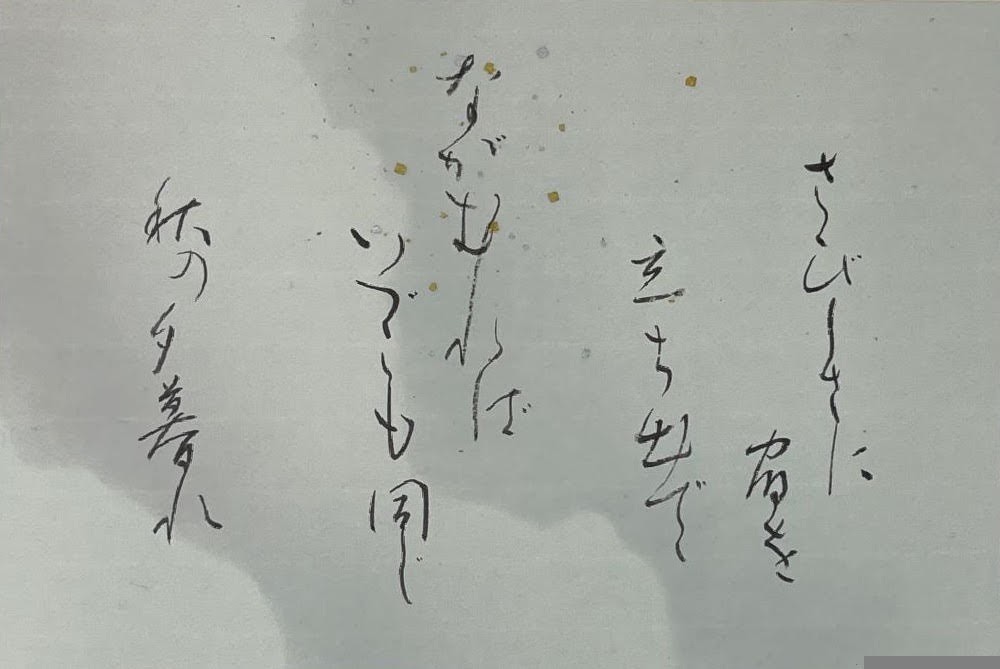 さびしさに
宿を
立ち出でて
ながむれば
いづこも同じ
秋の夕暮れ